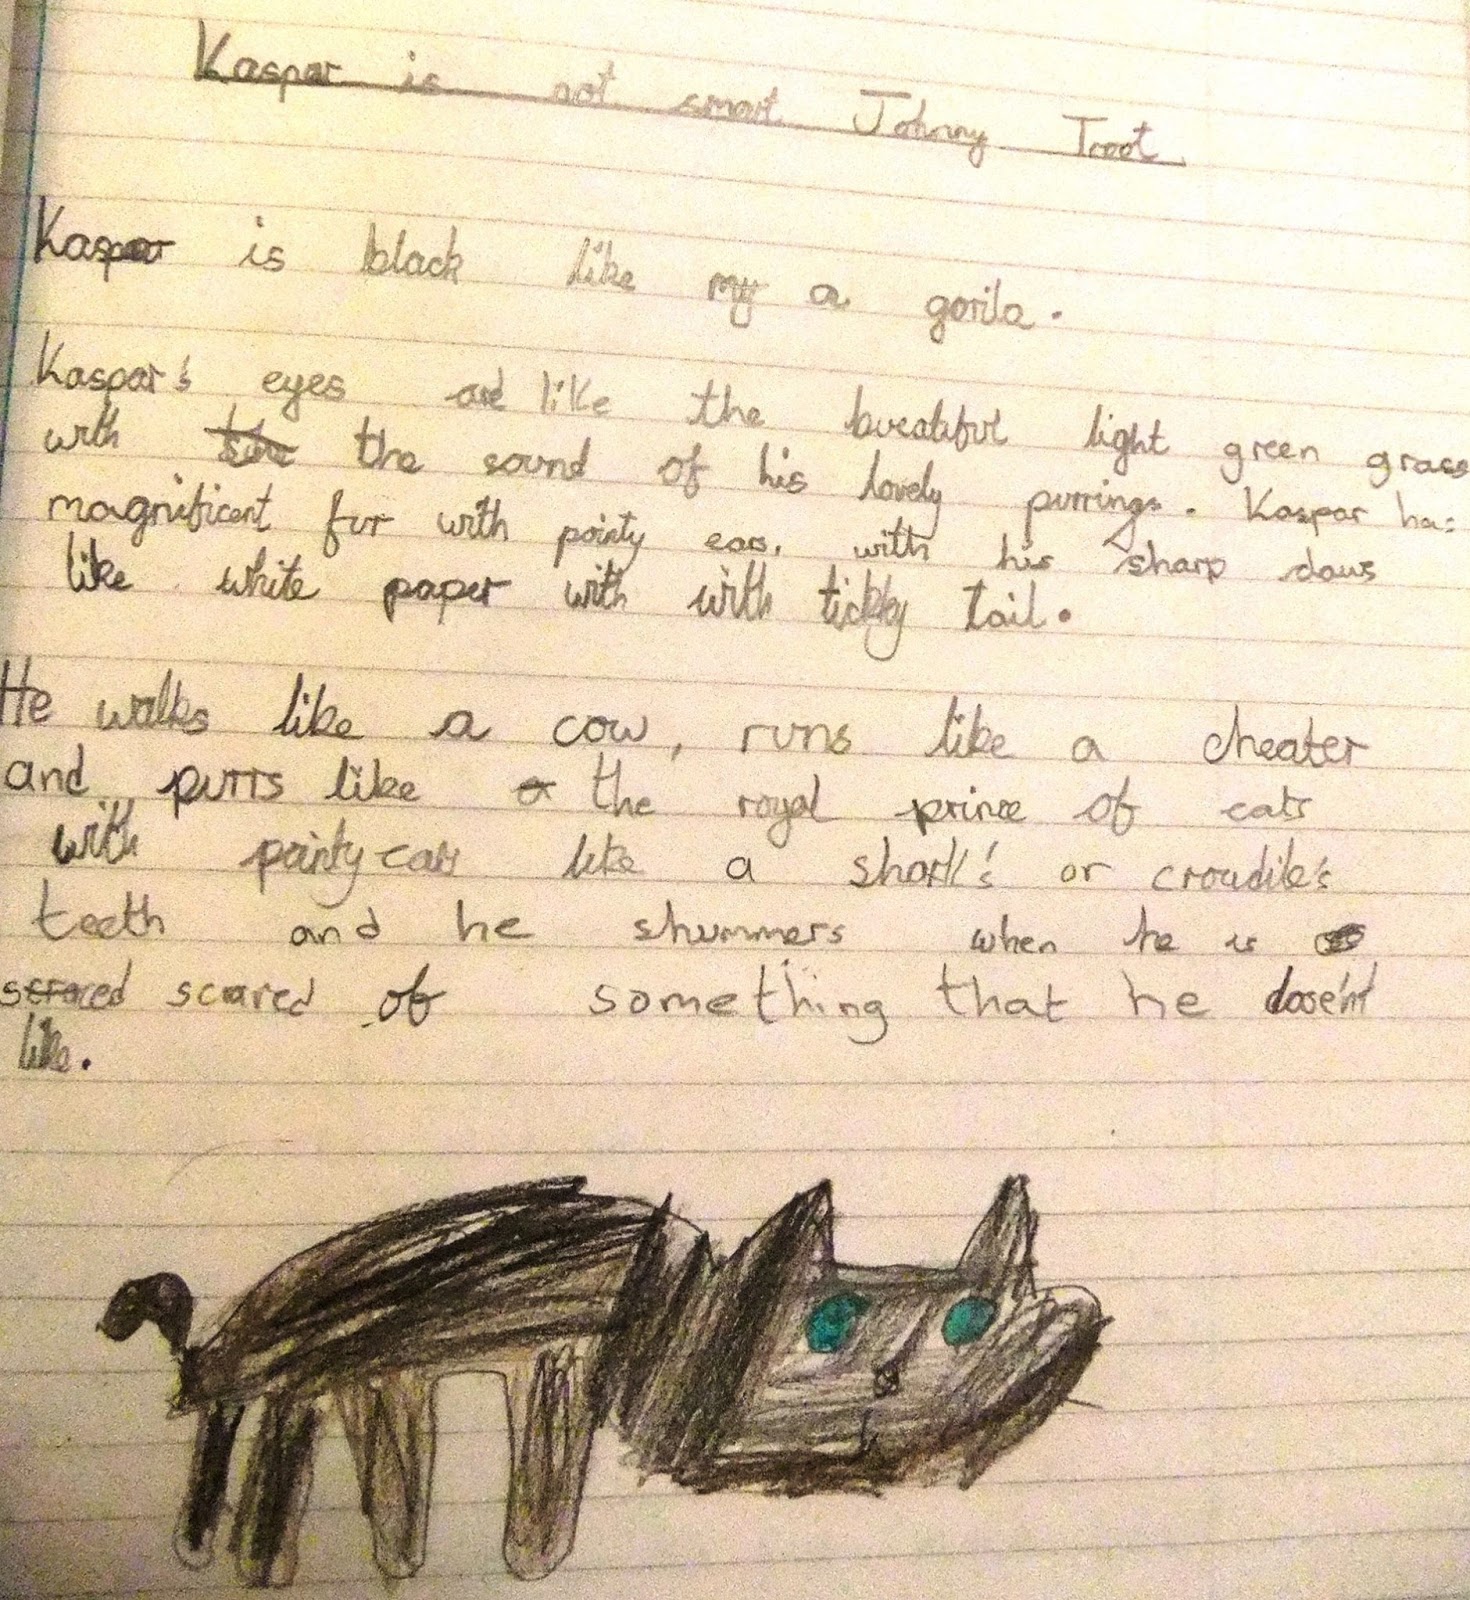 Kaspar is not smart Johnny Troot
Kaspar is black like my a gorila.
Kaspar's eyes are like the bueatiful light green grass
with the sound of his lovely purrings. Kaspar has
magnificent fur with pointy ears, with his sharp claws
like white paper with with tickley tail.
He walks like a cow, runs like a cheater
and purrs like a the royal prince of cats
with pointy ears like a shark's or croudile's
teeth and he shummers when he is
scraced scared of something that he dose'nt
like.